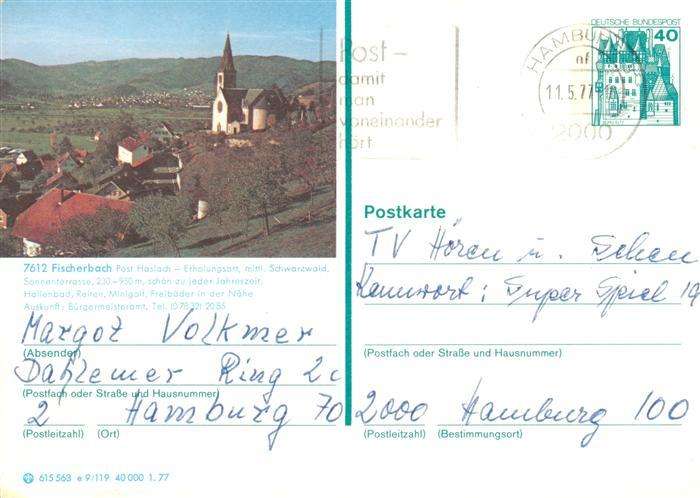 DEUTSCHE BUNDESPOST
40
HAMBURG
nf
11.5.77
2000
Post-
damit
man
voneinander
hört
7612 Fischerbach Post Haslach – Erholungsort, mittl. Schwarzwald,
Sonnenterrasse, 230–950 m, schön zu jeder Jahreszeit.
Hallenbad, Reiten, Minigolf, Freibäder in der Nähe
Auskunft: Bürgermeisteramt, Tel. (0 78 32) 20 85
Margot Volkmer
(Absender)
Dahlemer Ring 2c
(Postfach oder Straße und Hausnummer)
2 Hamburg 70
(Postleitzahl) (Ort)
615 563 e 9/119 40 000 1. 77
Postkarte
TV Hören u. Sehen
Kennwort: Super Spiel 19
(Postfach oder Straße und Hausnummer)
2000 Hamburg 100
(Postleitzahl) (Bestimmungsort)